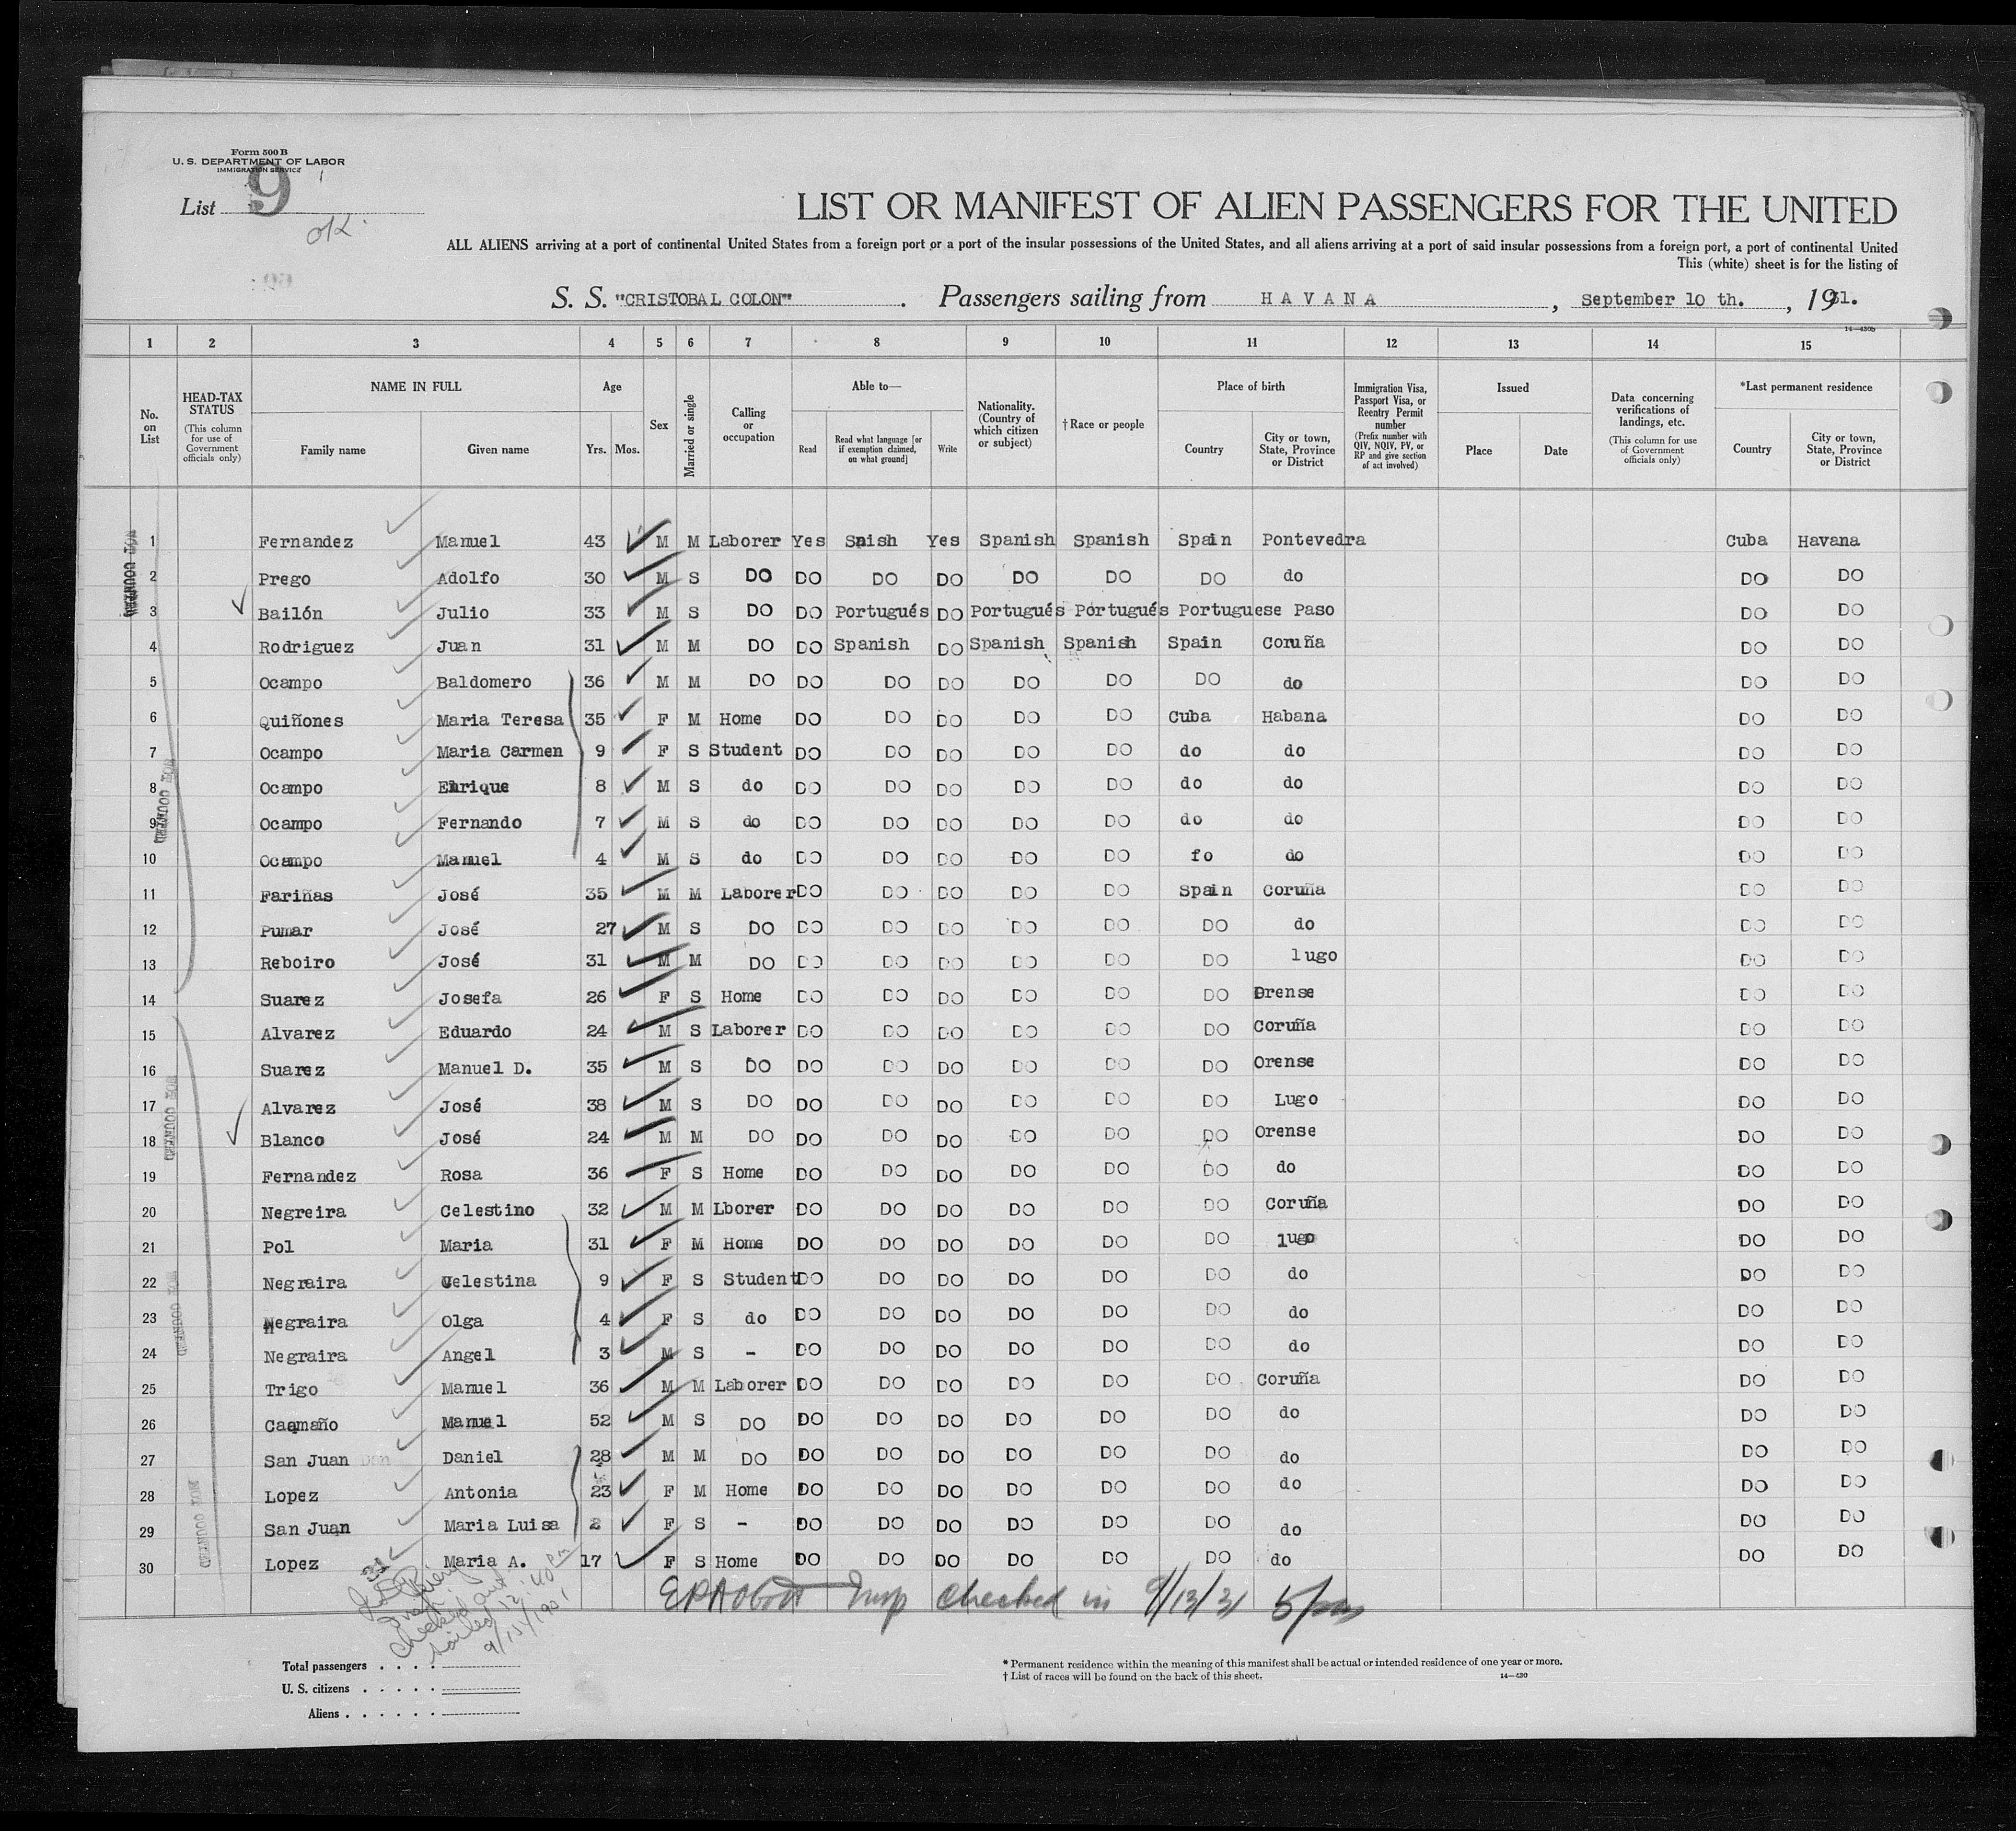 Form 500 B
U. S. DEPARTMENT OF LABOR
IMMIGRATION SERVICE
List 9
OK.
LIST OR MANIFEST OF ALIEN PASSENGERS FOR THE UNITED
ALL ALIENS arriving at a port of continental United States from a foreign port or a port of the insular possessions of the United States, and all aliens arriving at a port of said insular possessions from a foreign port, a port of continental United
This (white) sheet is for the listing of
S. S. "CRISTOBAL COLON" . Passengers sailing from HAVANA , September 10 th. , 1931.
14—430b
1 2 3 4 5 6 7 8 9 10 11 12 13 14 15
No. on List
HEAD-TAX STATUS (This column for use of Government officials only)
NAME IN FULL
Family name Given name
Age
Yrs. Mos.
Sex
Married or single
Calling or occupation
Able to—
Read Read what language [or if exemption claimed, on what ground] Write
Nationality. (Country of which citizen or subject)
† Race or people
Place of birth
Country City or town, State, Province or District
Immigration Visa, Passport Visa, or Reentry Permit number (Prefix number with QIV, NQIV, PV, or RP and give section of act involved)
Issued
Place Date
Data concerning verifications of landings, etc. (This column for use of Government officials only)
*Last permanent residence
Country City or town, State, Province or District
1 Fernandez Manuel 43 M M Laborer Yes Snish Yes Spanish Spanish Spain Pontevedra Cuba Havana
2 Prego Adolfo 30 M S DO DO DO DO DO DO DO do DO DO
3 Bailón Julio 33 M S DO DO Portugués DO Portugués Portugués Portuguese Paso DO DO
4 Rodriguez Juan 31 M M DO DO Spanish DO Spanish Spanish Spain Coruña DO DO
5 Ocampo Baldomero 36 M M DO DO DO DO DO DO DO do DO DO
6 Quiñones Maria Teresa 35 F M Home DO DO DO DO DO Cuba Habana DO DO
7 Ocampo Maria Carmen 9 F S Student DO DO DO DO DO do do DO DO
8 Ocampo Enrique 8 M S do DO DO DO DO DO do do DO DO
9 Ocampo Fernando 7 M S do DO DO DO DO DO do do DO DO
10 Ocampo Manuel 4 M S do DO DO DO DO DO fo do DO DO
11 Fariñas José 35 M M Laborer DO DO DO DO DO Spain Coruña DO DO
12 Pumar José 27 M S DO DO DO DO DO DO DO do DO DO
13 Reboiro José 31 M M DO DO DO DO DO DO DO lugo DO DO
14 Suarez Josefa 26 F S Home DO DO DO DO DO DO Orense DO DO
15 Alvarez Eduardo 24 M S Laborer DO DO DO DO DO DO Coruña DO DO
16 Suarez Manuel D. 35 M S DO DO DO DO DO DO DO Orense DO DO
17 Alvarez José 38 M S DO DO DO DO DO DO DO Lugo DO DO
18 Blanco José 24 M M DO DO DO DO DO DO DO Orense DO DO
19 Fernandez Rosa 36 F S Home DO DO DO DO DO DO do DO DO
20 Negreira Celestino 32 M M Lborer DO DO DO DO DO DO Coruña DO DO
21 Pol Maria 31 F M Home DO DO DO DO DO DO lugo DO DO
22 Negraira Celestina 9 F S Student DO DO DO DO DO DO do DO DO
23 Negraira Olga 4 F S do DO DO DO DO DO DO do DO DO
24 Negraira Angel 3 M S - DO DO DO DO DO DO do DO DO
25 Trigo Manuel 36 M M Laborer DO DO DO DO DO DO Coruña DO DO
26 Caamaño Manuel 52 M S DO DO DO DO DO DO DO do DO DO
27 San Juan Daniel 28 M M DO DO DO DO DO DO DO do DO DO
28 Lopez Antonia 23 F M Home DO DO DO DO DO DO do DO DO
29 San Juan Maria Luisa 2 F S - DO DO DO DO DO DO do DO DO
30 Lopez Maria A. 17 F S Home DO DO DO DO DO DO do DO DO
NOT COUNTED
NOT COUNTED
NOT COUNTED
NOT COUNTED
NOT COUNTED
Insp Checked in 9/13/31 5/pm
checked out
sailed 12:40 pm
Total passengers . . . .
U. S. citizens . . . . .
Aliens . . . . . .
* Permanent residence within the meaning of this manifest shall be actual or intended residence of one year or more.
† List of races will be found on the back of this sheet. 14—430